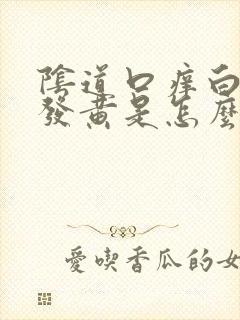 陰道口痒白
發黃是怎麼
愛喫香瓜的女